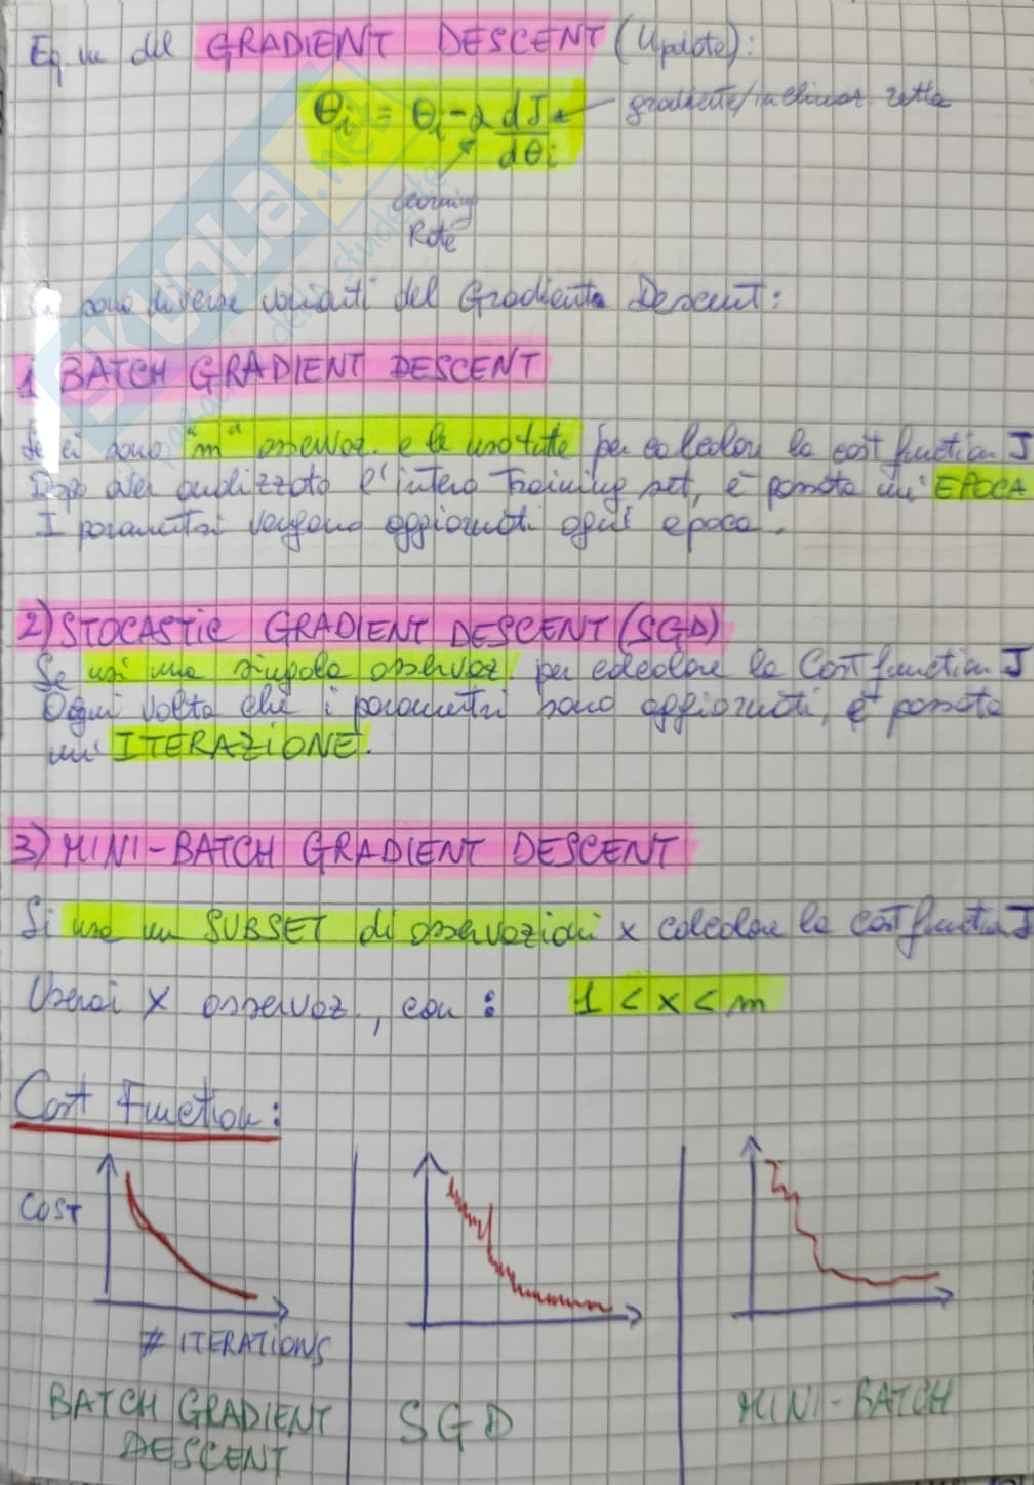 Eq. ne del GRADIENT DESCENT (Update):
θi = θi - α dJ/dθi ← gradiente/inclinaz. retta
Learning
Rate
Ci sono diverse varianti del Gradiente Descent:
1 BATCH GRADIENT DESCENT
Se ci sono "m" osservaz. e le uso tutte per calcolare la cost function J
Dopo aver analizzato l'intero Training set, è passata un' EPOCA
I parametri vengono aggiornati ogni epoca.
2) STOCASTIC GRADIENT DESCENT (SGD)
Se usi una singola osservaz. per calcolare la Cost function J
Ogni volta che i parametri sono aggiornati, è passata
un' ITERAZIONE.
3) MINI-BATCH GRADIENT DESCENT
Si usa un SUBSET di osservazioni x calcolare la cost function J
Userai x osservaz., con: 1 < x < m
Cost Function:
COST
# ITERATIONS
BATCH GRADIENT
DESCENT
SGD
MINI-BATCH
SKUOLA.net